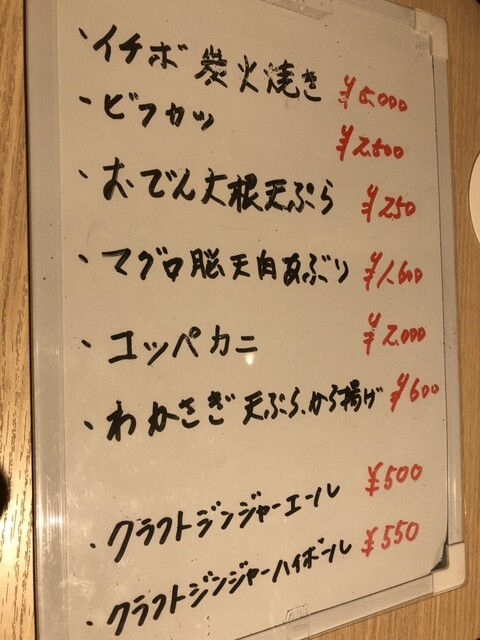 ・イチボ炭火焼き ¥5.000
・ビフカツ ¥2.500
・おでん大根天ぷら ¥250
・マグロ脳天肉あぶり ¥1.600
・コッペカニ ¥2.000
・わかさぎ天ぷら、から揚げ ¥600
・クラフトジンジャーエール ¥500
・クラフトジンジャーハイボール ¥550